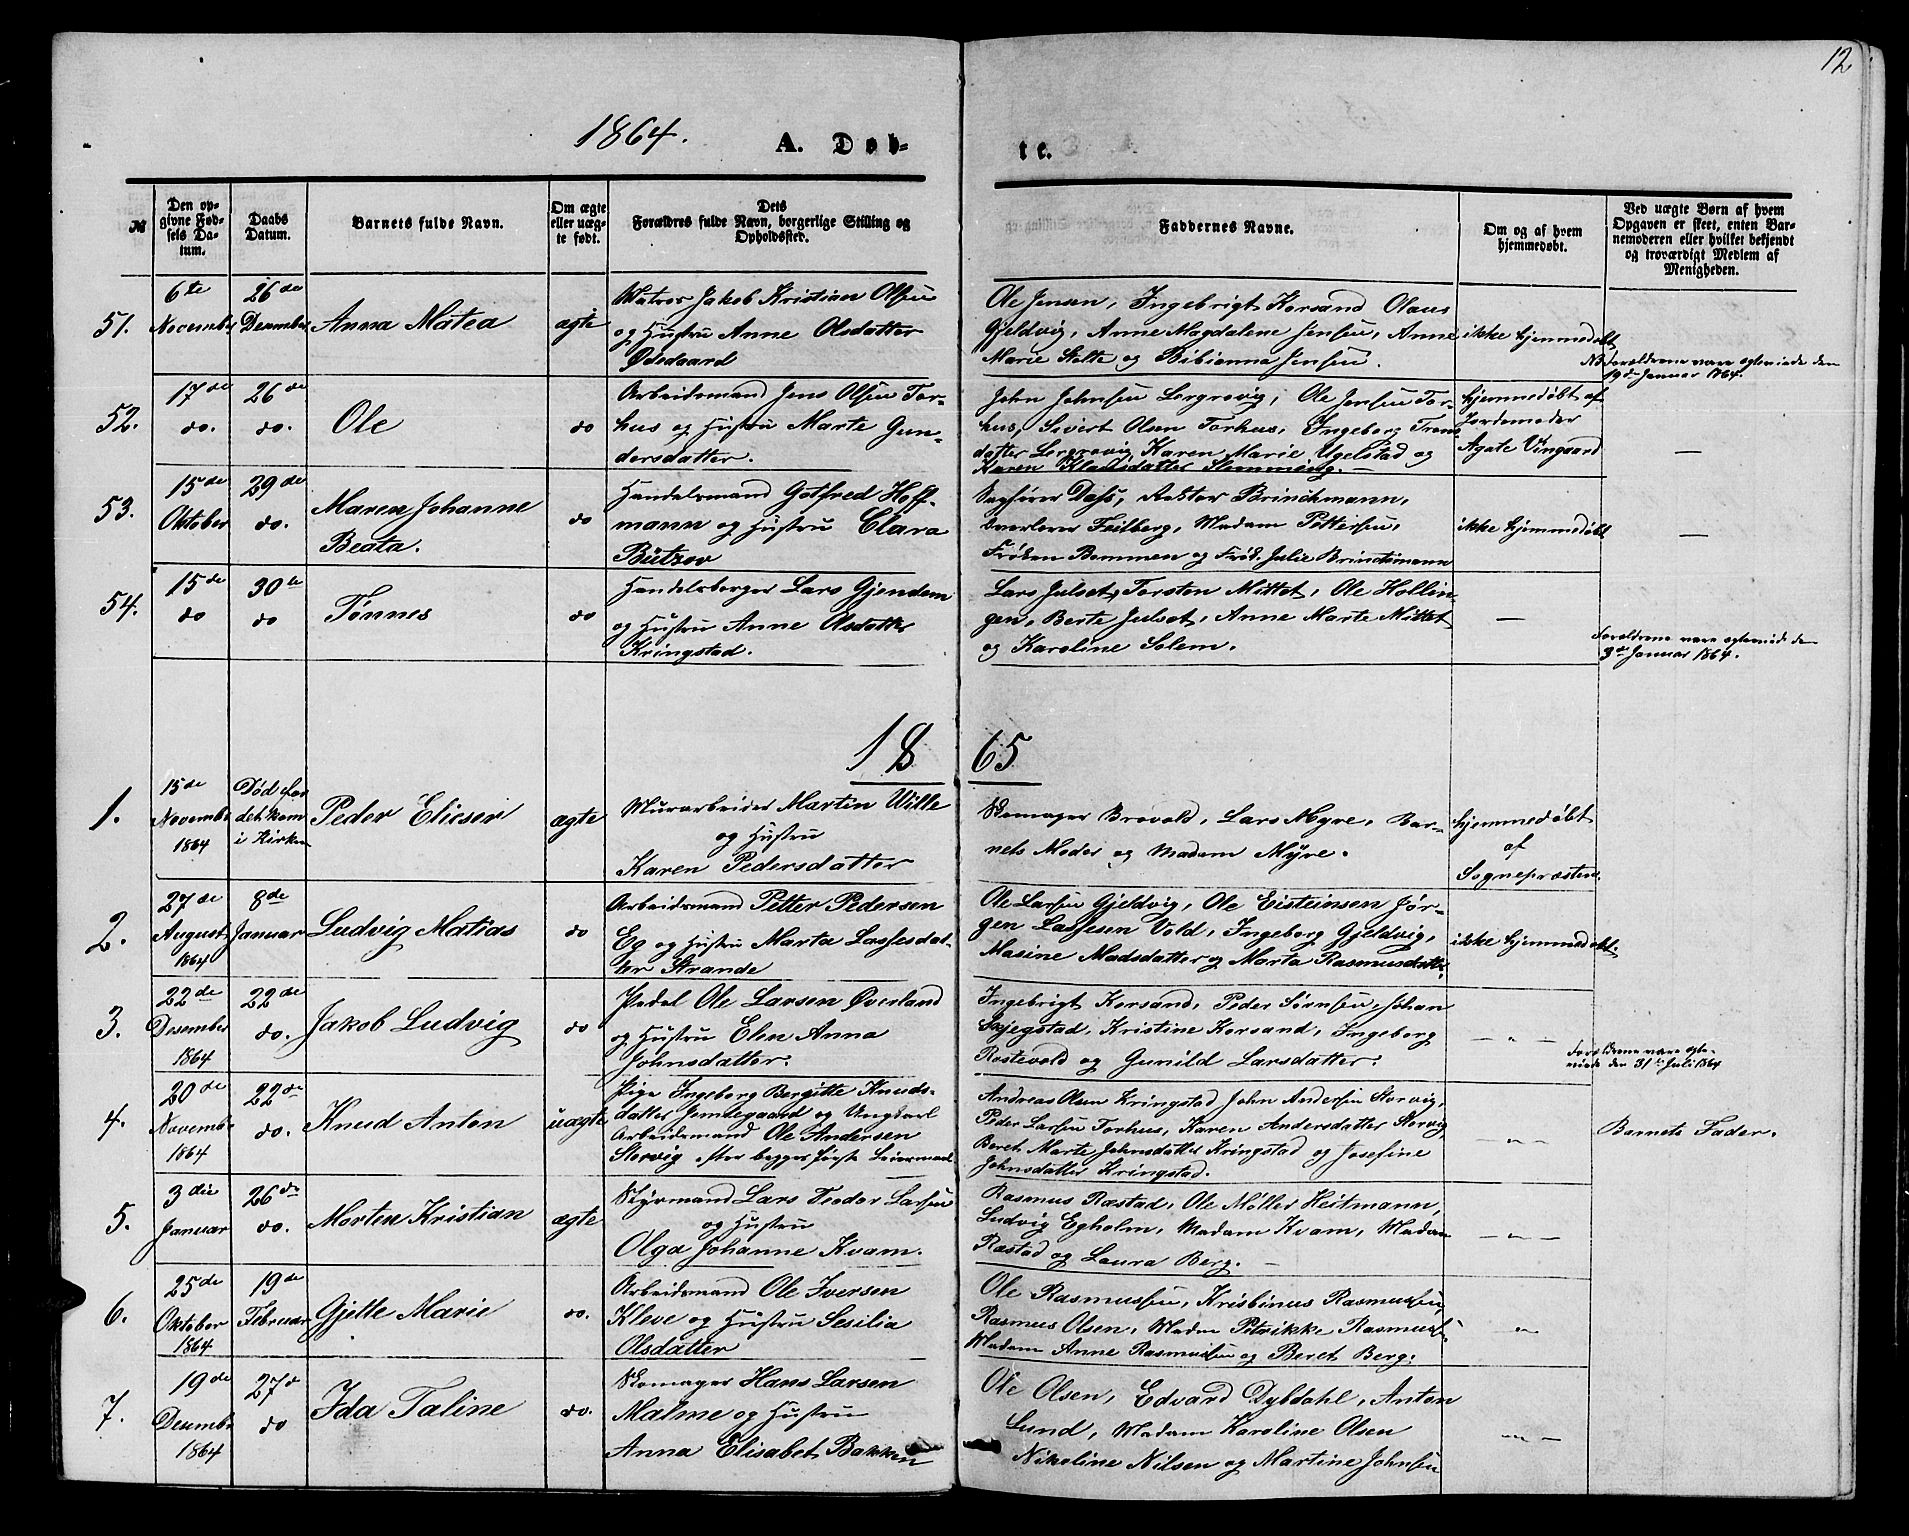 12
1864.
A. Døb-
te.
№
Den op-
givne Fød-
sels Da-
tum.
Daabs
Datum.
Barnets fulde Navn.
Om ægte
eller uæg-
te født.
Dets
Forældres fulde Navn, borgerlige Stilling og
Opholdssted.
Faddernes Navne.
Om og af hvem
hjemmedøbt.
Ved uægte Børn af hvem
Opgaven er skeet, enten Bar-
nemoderen eller hvilket bekjendt
og troværdigt Medlem af
Menigheden.
51.
6te
November
26de
Desember
Anna Matea
ægte
Matros Jakob Kristian Olsen
og Hustru Anne Olsdatter
Ødegaard
Ole Jensen, Ingebrigt Korsand Olaus
Gjeldvig, Anne Magdalene Jensen, Anne
Marie Stette og Bibianna Jensen.
ikke hjemmedøbt
NB. Forældrene vare egteviede den
19de Januar 1864.
52.
17de
do.
26de
do.
Ole
do
Arbeidsmand Jens Olsen Tor-
hus og Hustru Marte Gun-
dersdatter.
John Johnsen Lergrovig, Ole Jensen Tor-
hus, Sivert Olsen Torhus, Ingeborg Trons
datter Lergrovig, Karen Marie Ugelstad og
Karen Klausdatter
hjemmedøbt af
Jordemoder
Agate Vingaard
—
53.
15de
Oktober
29de
do.
Maren Johanne
Beata.
do
Handelsmand Gotfred Hoff-
mann og Hustru Clara
Bützov
Sagfører Dass, Rektor Brinchmann,
Overlærer Feilberg, Madam Pettersen,
Frøken Bommen og Frøk. Julie Brinchmann
ikke hjemmedøbt
—
54.
15de
do
30te
do
Tønnes
do
Handelsborger Lars Gjendem
og Hustru Anne Olsdatter
Kringstad.
Lars Julset, Torsten Mittet, Ole Hollin-
gen, Berte Julset, Anne Marte Mittet
og Karoline Solem.
—
Forældrene vare egteviede den
3de Januar 1864.
1865
1.
15de
Novembr
1864
Død før
det kom
i Kirken
Peder Elieser
ægte
Murarbeider Martin Wille
og Hustru
Karen Pedersdatter
Skomager Brovold, Lars Myre, Bar-
nets Moder og Madam Myre.
hjemmedøbt
af
Sognepræsten.
2.
27de
August
1864
8de
Januar
Ludvig Matias
do
Arbeidsmand Petter Pedersen
Eg og Hustru Marta Lassesdat-
ter Strande
Ole Larsen Gjeldvig, Ole Eisteinsen Jør-
gen Lassesen Vold, Ingeborg Gjeldvig,
Masine Madsdatter og Marta Rasmusdatter
ikke hjemmedøbt.
3.
22de
Desember
1864
22de
do.
Jakob Ludvig
do
Pedel Ole Larsen Øverland
og Hustru Elen Anna
Johnsdatter.
Ingebrigt Korsand, Peder Sørnsen, Johan
Skjegstad, Kristine Korsand, Ingeborg
Rostevold og Gunild Larsdatter.
— „ —
Forældrene vare egte-
viede den 31te Juli 1864
4.
20de
Novembr
1864
22de
do.
Knud Anton
uægte
Pige Ingeborg Bergitte Knuds-
datter Jendegaard og Ungkarl
Arbeidsmand Ole Andersen
Storvig efter begges første Leiermaal
Andreas Olsen Kringstad John Andersen Storvig,
Peder Larsen Torhus, Karen Andersdatter Storvig
Beret Marte Johnsdatter Kringstad og Josefine
Johnsdatter Kringstad.
— „ —
Barnets Fader.
5.
3die
Januar
26de
do.
Morten Kristian
ægte
Styrmand Lars Teodor Larsen
og Hustru
Olga Johanne Kvam.
Rasmus Ræstad, Ole Møller Heitmann,
Ludvig Egholm, Madam Kvam, Madam
Ræstad og Laura Berg. —
— „ —
6.
25de
Oktober
1864
19de
Februar
Gjette Marie
do.
Arbeidsmand Ole Iversen
Kleve og Hustru Sesilia
Olsdatter
Ole Rasmussen, Kristinus Rasmussen
Rasmus Olsen, Madam Petrikke Rasmussen
Madam Anne Rasmussen og Beret Berg.
— „ —
7.
19de
Desembr
1864
27d
do
Ida Taline
do.
Skomager Hans Larsen
Malme og Hustru
Anna Elisabet Bakken
Ole Olsen, Edvard Dybdahl, Anton
Lund, Madam Karoline Olsen
Nikoline Nilsen og Martine Johnsen
— „ —